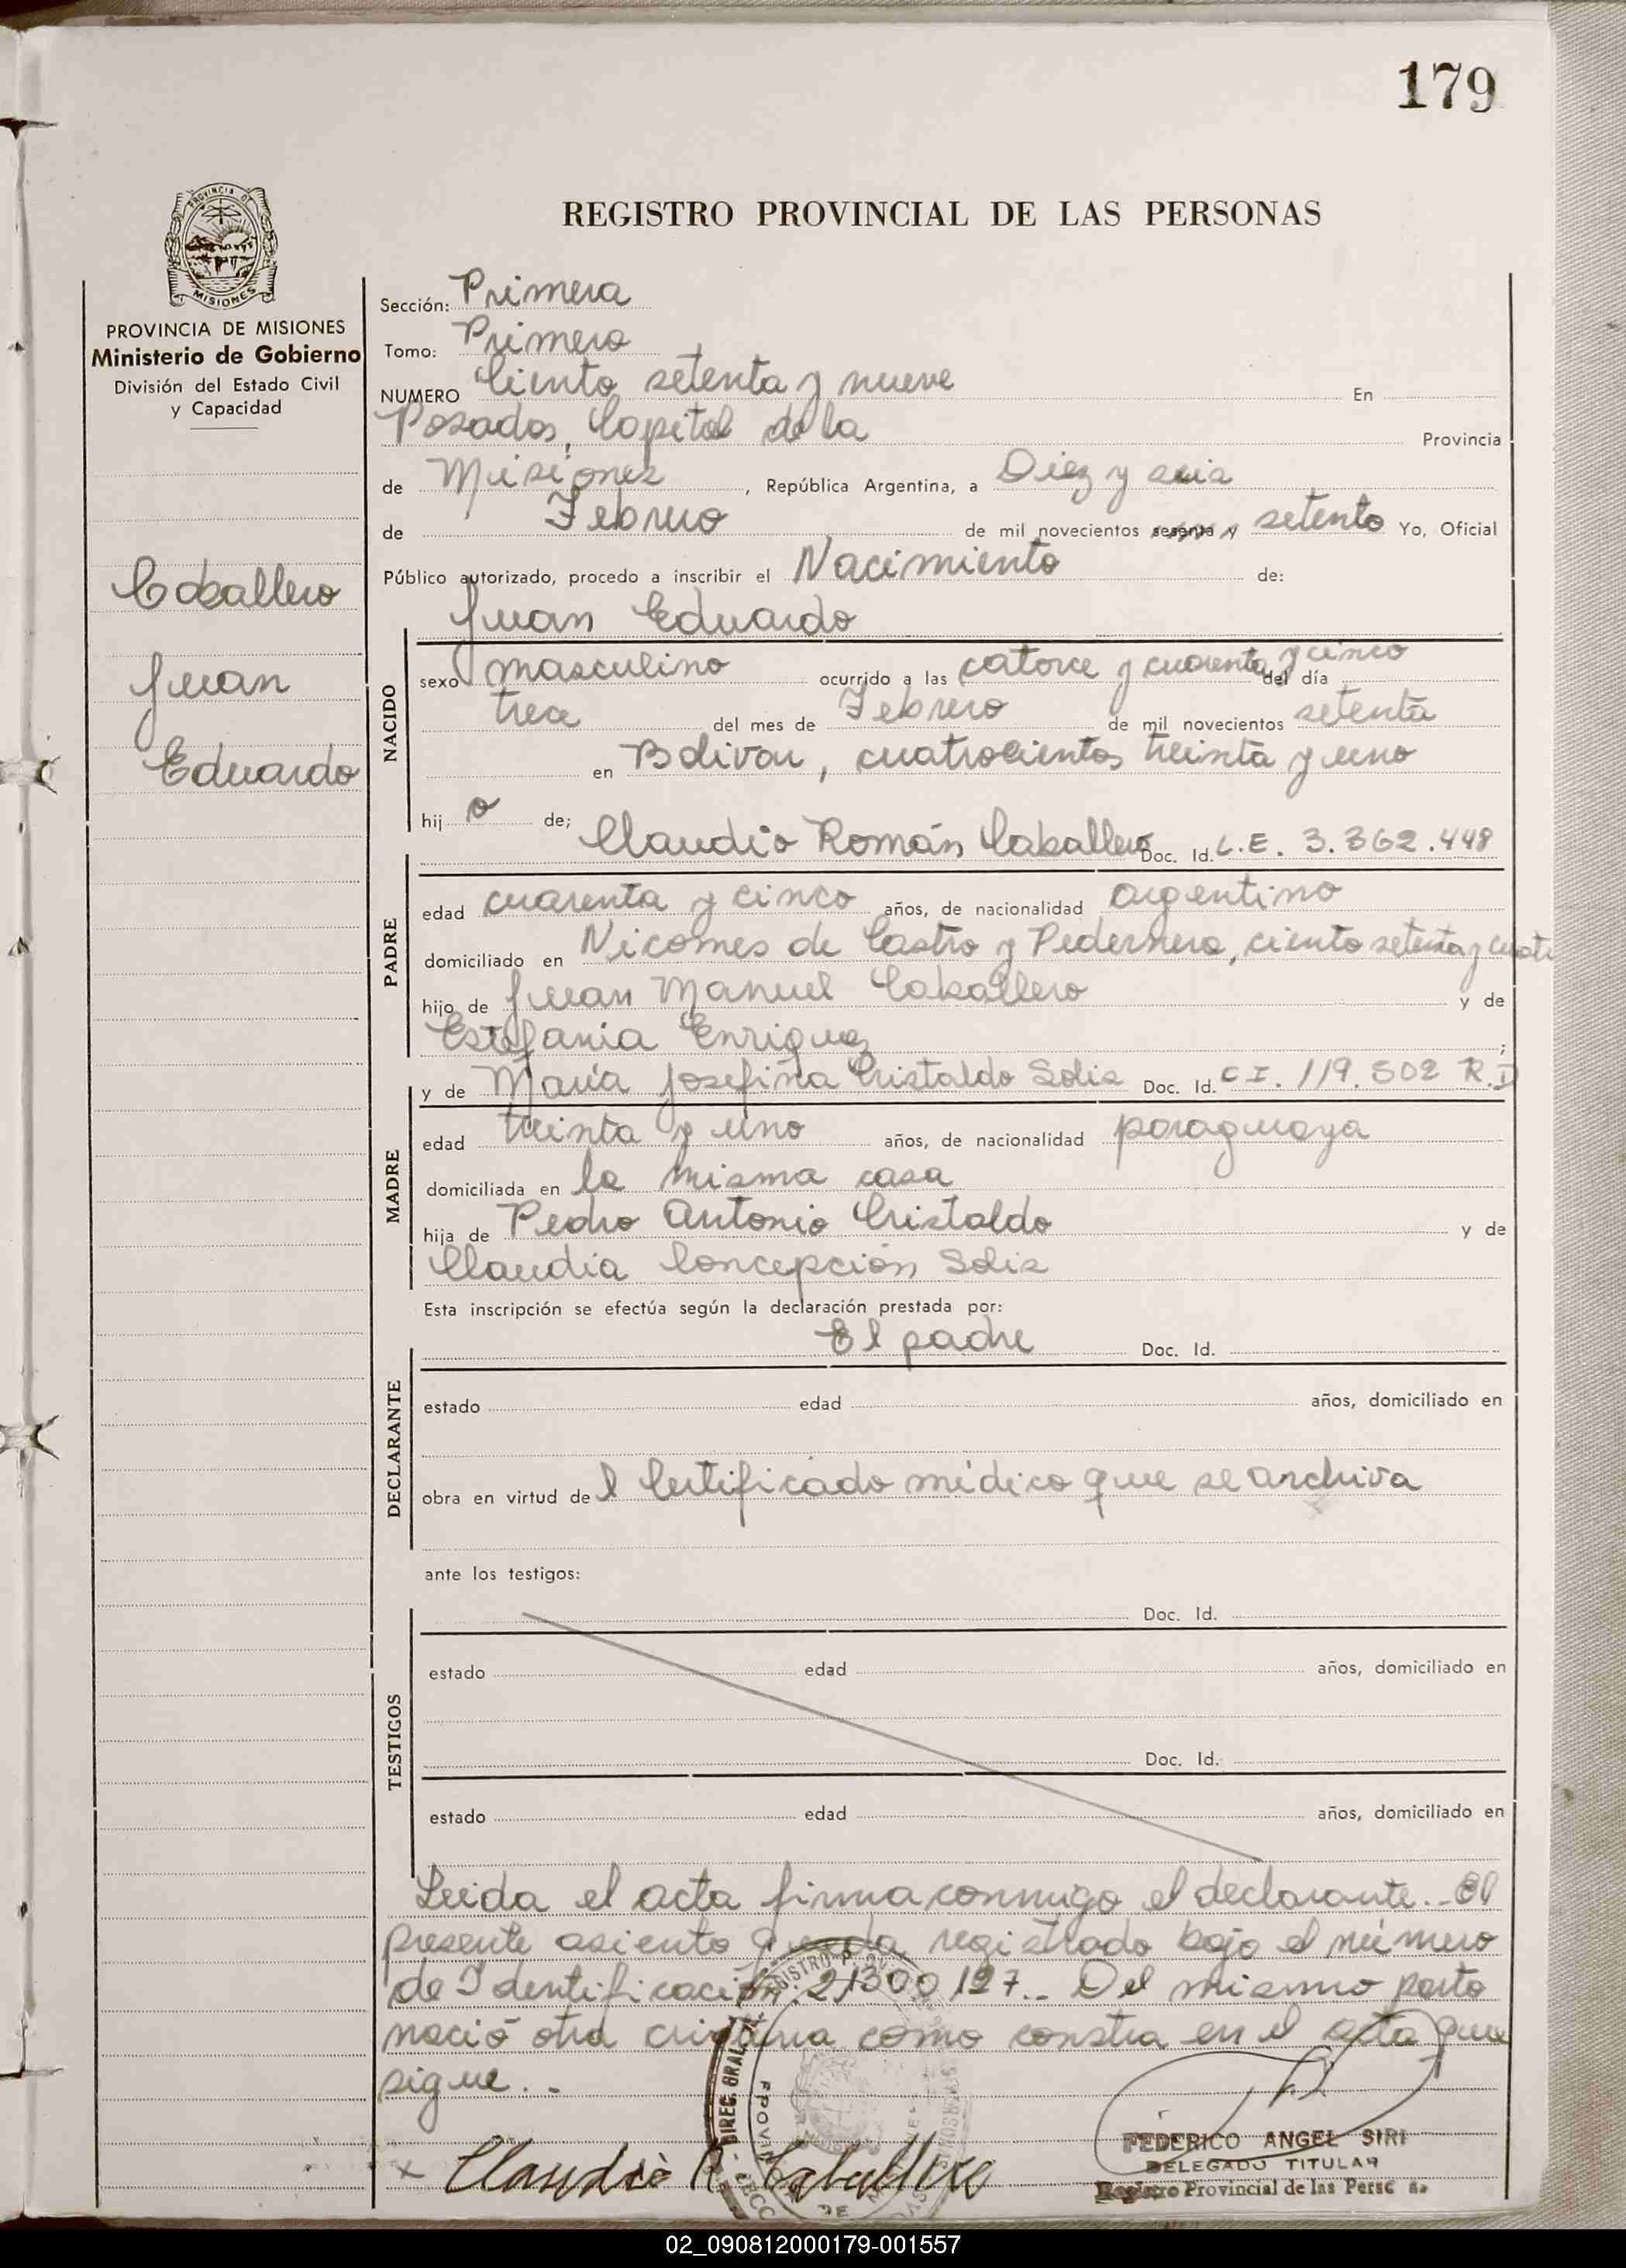 179
REGISTRO PROVINCIAL DE LAS PERSONAS
PROVINCIA DE
MISIONES
PROVINCIA DE MISIONES
Ministerio de Gobierno
División del Estado Civil
y Capacidad
Caballero
Juan
Eduardo
Sección: Primera
Tomo: Primero
NUMERO Ciento setenta y nueve En
Posadas, Capital de la Provincia
de Misiones, República Argentina, a Diez y seis
de Febrero de mil novecientos sesenta y setenta Yo, Oficial
Público autorizado, procedo a inscribir el Nacimiento de:
Juan Eduardo
NACIDO
sexo masculino ocurrido a las catorce y cuarenta y cinco del día
trece del mes de Febrero de mil novecientos setenta
en Bolivar, cuatrocientos treinta y uno
hijo de; Claudio Román Caballero Doc. Id. L.E. 3.362.448
PADRE
edad cuarenta y cinco años, de nacionalidad argentino
domiciliado en Nicomes de Castro y Pedernera, ciento setenta y cuat
hijo de Juan Manuel Caballero y de
Estefania Enriquez ;
y de María Josefina Cristaldo Solis Doc. Id. C.I. 119.502 R.I
MADRE
edad treinta y uno años, de nacionalidad paraguaya
domiciliada en la misma casa
hija de Pedro Antonio Cristaldo y de
Claudia Concepción Solis
Esta inscripción se efectúa según la declaración prestada por:
El padre Doc. Id.
DECLARANTE
estado edad años, domiciliado en
obra en virtud del Certificado médico que se archiva
ante los testigos:
Doc. Id.
TESTIGOS
estado edad años, domiciliado en
Doc. Id.
estado edad años, domiciliado en
Leida el acta firma conmigo el declarante.- El
presente asiento queda registrado bajo el número
de Identificación: 21300127.- Del mismo parto
nació otra criatura como constra en el acta que
sigue.-
x Claudio R. Caballero
FEDERICO ANGEL SIRI
DELEGADO TITULAR
Registro Provincial de las Persc
02_090812000179-001557